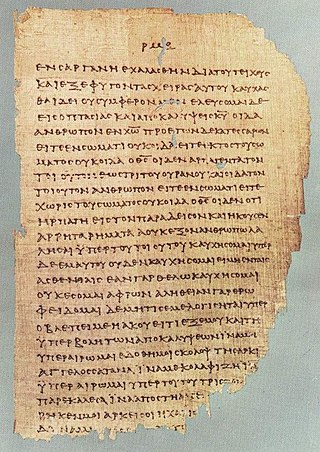 ΕΝϹΑΡΓΑΝΗΕΧΑΛΑϹΘΗΝΔΙΑΤΟΥΤΕΙΧΟΥϹ
ΚΑΙΕΞΕΦΥΓΟΝΤΑϹΧΕΙΡΑϹΑΥΤΟΥΚΑΥΧΑϹ
ΘΑΙΔΕΙΟΥϹΥΜΦΕΡΟΝΜΕΝΕΛΕΥϹΟΜΑΙΔΕ
ΕΙϹΟΠΤΑϹΙΑϹΚΑΙΑΠΟΚΑΛΥΨΕΙϹΚΥ ΟΙΔΑ
ΑΝΘΡΩΠΟΝΕΝΧΡΩ ΠΡΟΕΤΩΝΔΕΚΑΤΕϹϹΑΡΩΝ
ΕΙΤΕΕΝϹΩΜΑΤΙΟΥΚΟΙΔΑΕΙΤΕΕΚΤΟϹΤΟΥϹΩ
ΜΑΤΟϹΟΥΚΟΙΔΑΟΘϹ ΟΙΔΕΝΑΡΠΑΓΕΝΤΑΤΟΝ
ΤΟΙΟΥΤΟΝΕΩϹΤΡΙΤΟΥΟΥΡΑΝΟΥΚΑΙΟΙΔΑΤΟΝ
ΤΟΙΟΥΤΟΝΑΝΘΡΩΠΟΝΕΙΤΕΕΝϹΩΜΑΤΙΕΙΤΕ
ΧΩΡΙϹΤΟΥϹΩΜΑΤΟϹΟΥΚΟΙΔΑΟΘϹ ΟΙΔΕΝΟΤΙ
ΗΡΠΑΓΗΕΙϹΤΟΝΠΑΡΑΔΕΙϹΟΝΚΑΙΗΚΟΥϹΕΝ
ΑΡΡΗΤΑΡΗΜΑΤΑΑΟΥΚΕΞΟΝΑΝΘΡΩΠΩΛΑ
ΛΗϹΑΙΥΠΕΡΤΟΥΤΟΙΟΥΤΟΥΚΑΥΧΗϹΟΜΑΙΥΠΕΡ
ΔΕΕΜΑΥΤΟΥΟΥΔΕΝΚΑΥΧΗϹΟΜΑΙΕΙΜΗΕΝΤΑΙϹ
ΑϹΘΕΝΕΙΑΙϹΕΑΝΓΑΡΘΕΛΩΚΑΥΧΗϹΟΜΑΙ
ΟΥΚΕϹΟΜΑΙΑΦΡΩΝΑΛΗΘΕΙΑΝΓΑΡΕΡΩ
ΦΕΙΔΟΜΑΙΔΕΜΗΤΙϹΕΜΕΛΟΓΙϹΗΤΑΙΥΠΕΡ
ΟΒΛΕΠΕΙΜΕΗΑΚΟΥΕΙΤΙΕΞΕΜΟΥΚΑΙΤΗ
ΥΠΕΡΒΟΛΗΤΩΝΑΠΟΚΑΛΥΨΕΩΝΙΝΑΜΗ
ΥΠΕΡΑΙΡΩΜΑΙΕΔΟΘΗΜΟΙϹΚΟΛΟΨΤΗϹΑΡΚΙ
ΑΓΓΕΛΟϹϹΑΤΑΝΑΙΝΑΜΕΚΟΛΑΦΙΖΗΙΝΑ
ΥΠΕΡΑΙΡΩΜΑΙΥΠΕΡΤΟΥΤΟΥΤΡΙϹ
ΠΑΡΕΚΑΛΕϹΑΙΝΑΑΠΟϹΤΗ
ΡΗΚΕΝΜΟΙΑΡΚΕΙϹΟΙΗΧΑΡΙϹ